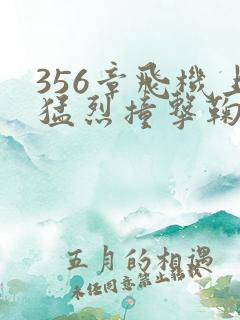 356章飛機上
猛烈撞擊鞠
五月的相遇
未任同意禁止轉載